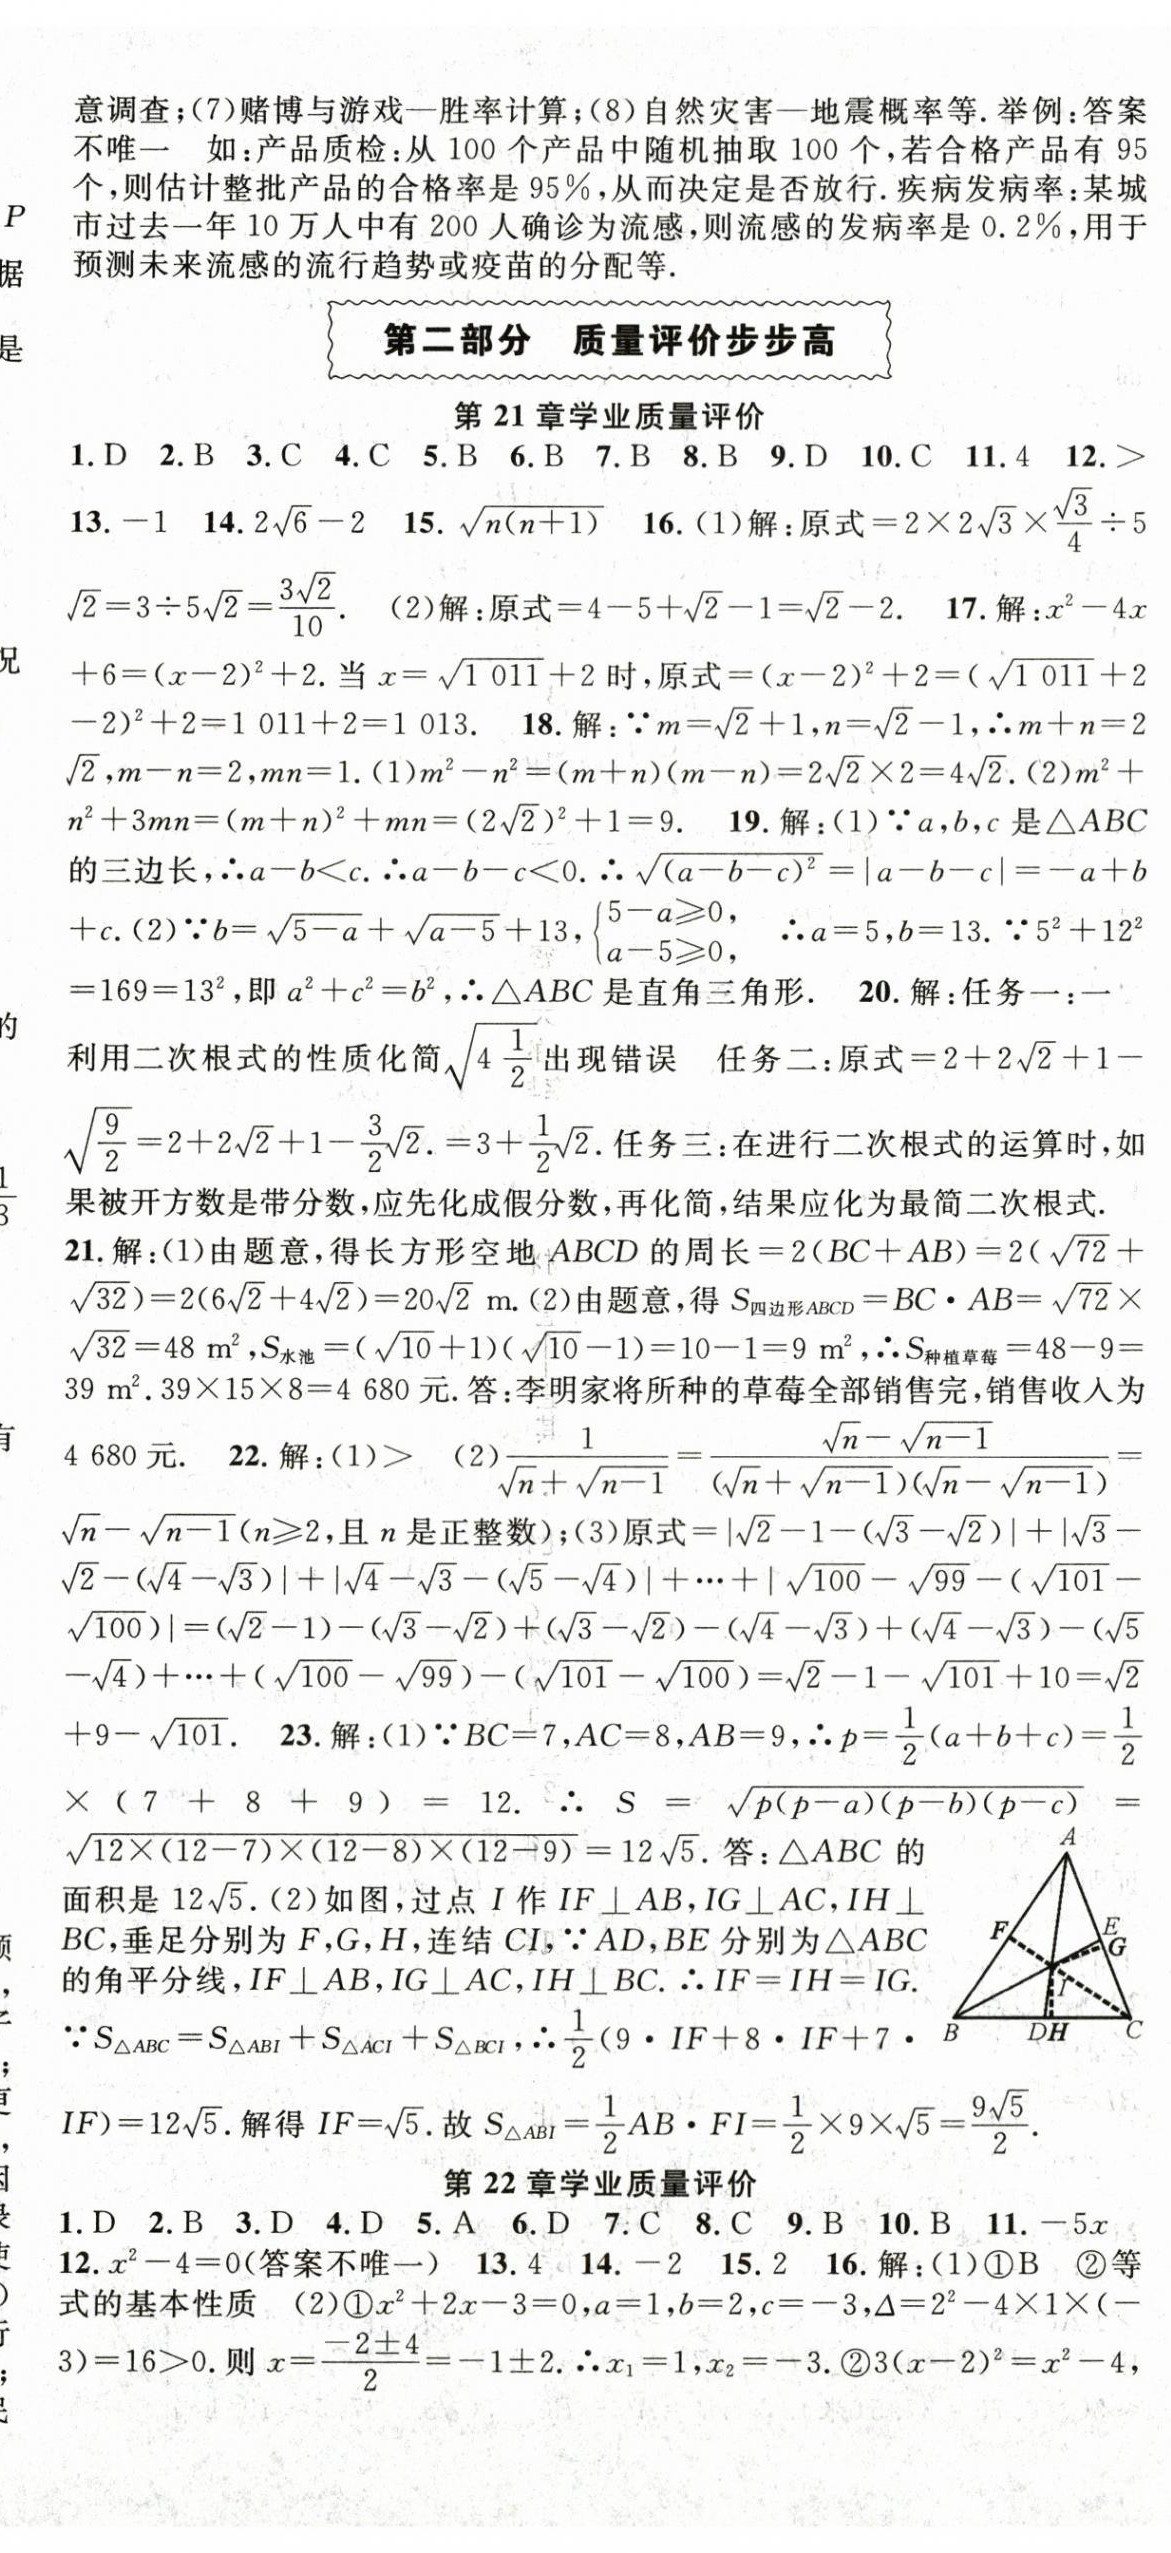 意调查;(7)赌博与游戏—胜率计算;(8)自然灾害—地震概率等.举例:答案
不唯一 如:产品质检:从 100 个产品中随机抽取 100 个,若合格产品有 95
个,则估计整批产品的合格率是 95%,从而决定是否放行.疾病发病率:某城
市过去一年 10 万人中有 200 人确诊为流感,则流感的发病率是 0.2%,用于
预测未来流感的流行趋势或疫苗的分配等.
第二部分 质量评价步步高
第 21 章学业质量评价
1. D 2. B 3. C 4. C 5. B 6. B 7. B 8. B 9. D 10. C 11. 4 12. >
13. −1 14. 2√6−2 15. √(n(n+1)) 16. (1)解:原式=2×2√3×√3/4÷5
√2=3÷5√2=3√2/10. (2)解:原式=4−5+√2−1=√2−2. 17. 解:x²−4x
+6=(x−2)²+2.当 x=√(1 011)+2 时,原式=(x−2)²+2=(√(1 011)+2
−2)²+2=1 011+2=1 013. 18. 解:∵m=√2+1,n=√2−1,∴m+n=2
√2,m−n=2,mn=1.(1)m²−n²=(m+n)(m−n)=2√2×2=4√2.(2)m²+
n²+3mn=(m+n)²+mn=(2√2)²+1=9. 19. 解:(1)∵a,b,c 是△ABC
的三边长,∴a−b<c.∴a−b−c<0.∴√((a−b−c)²)=|a−b−c|=−a+b
+c.(2)∵b=√(5−a)+√(a−5)+13,{5−a≥0, a−5≥0, ∴a=5,b=13.∵5²+12²
=169=13²,即 a²+c²=b²,∴△ABC 是直角三角形. 20. 解:任务一:一
利用二次根式的性质化简√(4 1/2)出现错误 任务二:原式=2+2√2+1−
√(9/2)=2+2√2+1−3/2√2.=3+1/2√2.任务三:在进行二次根式的运算时,如
果被开方数是带分数,应先化成假分数,再化简,结果应化为最简二次根式.
21. 解:(1)由题意,得长方形空地 ABCD 的周长=2(BC+AB)=2(√72+
√32)=2(6√2+4√2)=20√2 m.(2)由题意,得 S四边形ABCD=BC·AB=√72×
√32=48 m²,S水池=(√10+1)(√10−1)=10−1=9 m²,∴S种植草莓=48−9=
39 m².39×15×8=4 680 元.答:李明家将所种的草莓全部销售完,销售收入为
4 680 元. 22. 解:(1)> (2)1/(√n+√(n−1))=(√n−√(n−1))/((√n+√(n−1))(√n−√(n−1)))=
√n−√(n−1)(n≥2,且 n 是正整数);(3)原式=|√2−1−(√3−√2)|+|√3−
√2−(√4−√3)|+|√4−√3−(√5−√4)|+…+|√100−√99−(√101−
√100)|=(√2−1)−(√3−√2)+(√3−√2)−(√4−√3)+(√4−√3)−(√5
−√4)+…+(√100−√99)−(√101−√100)=√2−1−√101+10=√2
+9−√101. 23. 解:(1)∵BC=7,AC=8,AB=9,∴p=1/2(a+b+c)=1/2
×(7+8+9)=12.∴S=√(p(p−a)(p−b)(p−c))=
√(12×(12−7)×(12−8)×(12−9))=12√5.答:△ABC 的
面积是 12√5.(2)如图,过点 I 作 IF⊥AB,IG⊥AC,IH⊥
BC,垂足分别为 F,G,H,连结 CI,∵AD,BE 分别为△ABC
的角平分线,IF⊥AB,IG⊥AC,IH⊥BC.∴IF=IH=IG.
∵S△ABC=S△ABI+S△ACI+S△BCI,∴1/2(9·IF+8·IF+7·
IF)=12√5.解得 IF=√5.故 S△ABI=1/2AB·FI=1/2×9×√5=9√5/2.
A
F
E
G
I
B
D
H
C
第 22 章学业质量评价
1. D 2. B 3. D 4. D 5. A 6. D 7. C 8. C 9. B 10. B 11. −5x
12. x²−4=0(答案不唯一) 13. 4 14. −2 15. 2 16. 解:(1)①B ②等
式的基本性质 (2)①x²+2x−3=0,a=1,b=2,c=−3,Δ=2²−4×1×(−
3)=16>0.则 x=(−2±4)/2=−1±2.∴x₁=1,x₂=−3.②3(x−2)²=x²−4,
P
据
是
况
的
1/3
有